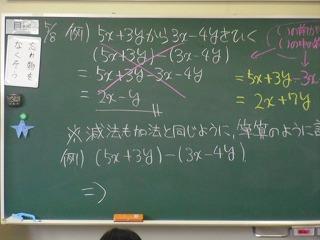 5/8 例) 5x+3yから3x-4yをひく
(5x+3y)-(3x-4y)
=5x+3y-3x-4y
=2x-y
=5x+3y-3x
=2x+7y
※減法も加法と同じように,筆算のように
例) (5x+3y)-(3x-4y)
=>
忘れ物を
なくそう